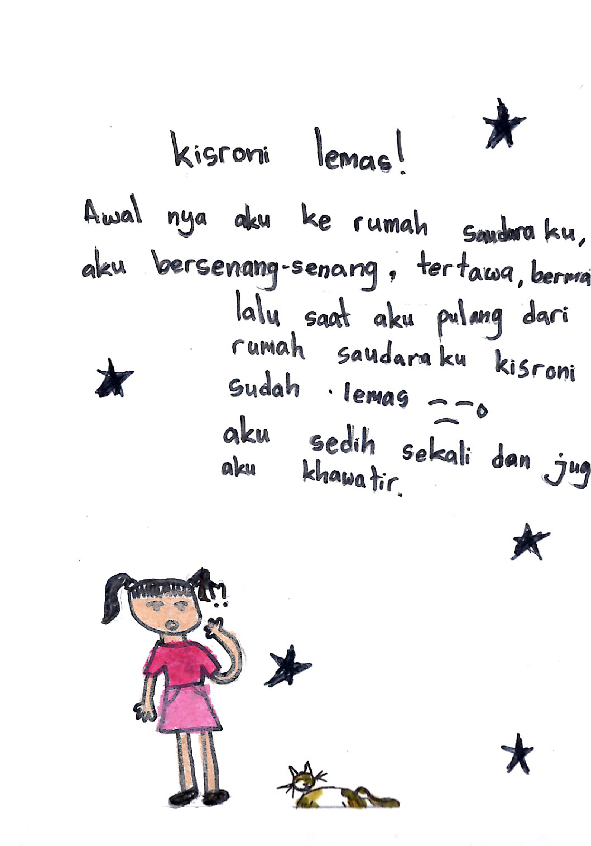 kisroni lemas!
Awal nya aku ke rumah saudara ku,
aku bersenang-senang, tertawa, berma
lalu saat aku pulang dari
rumah saudara ku kisroni
sudah lemas
aku sedih sekali dan jug
aku khawatir.